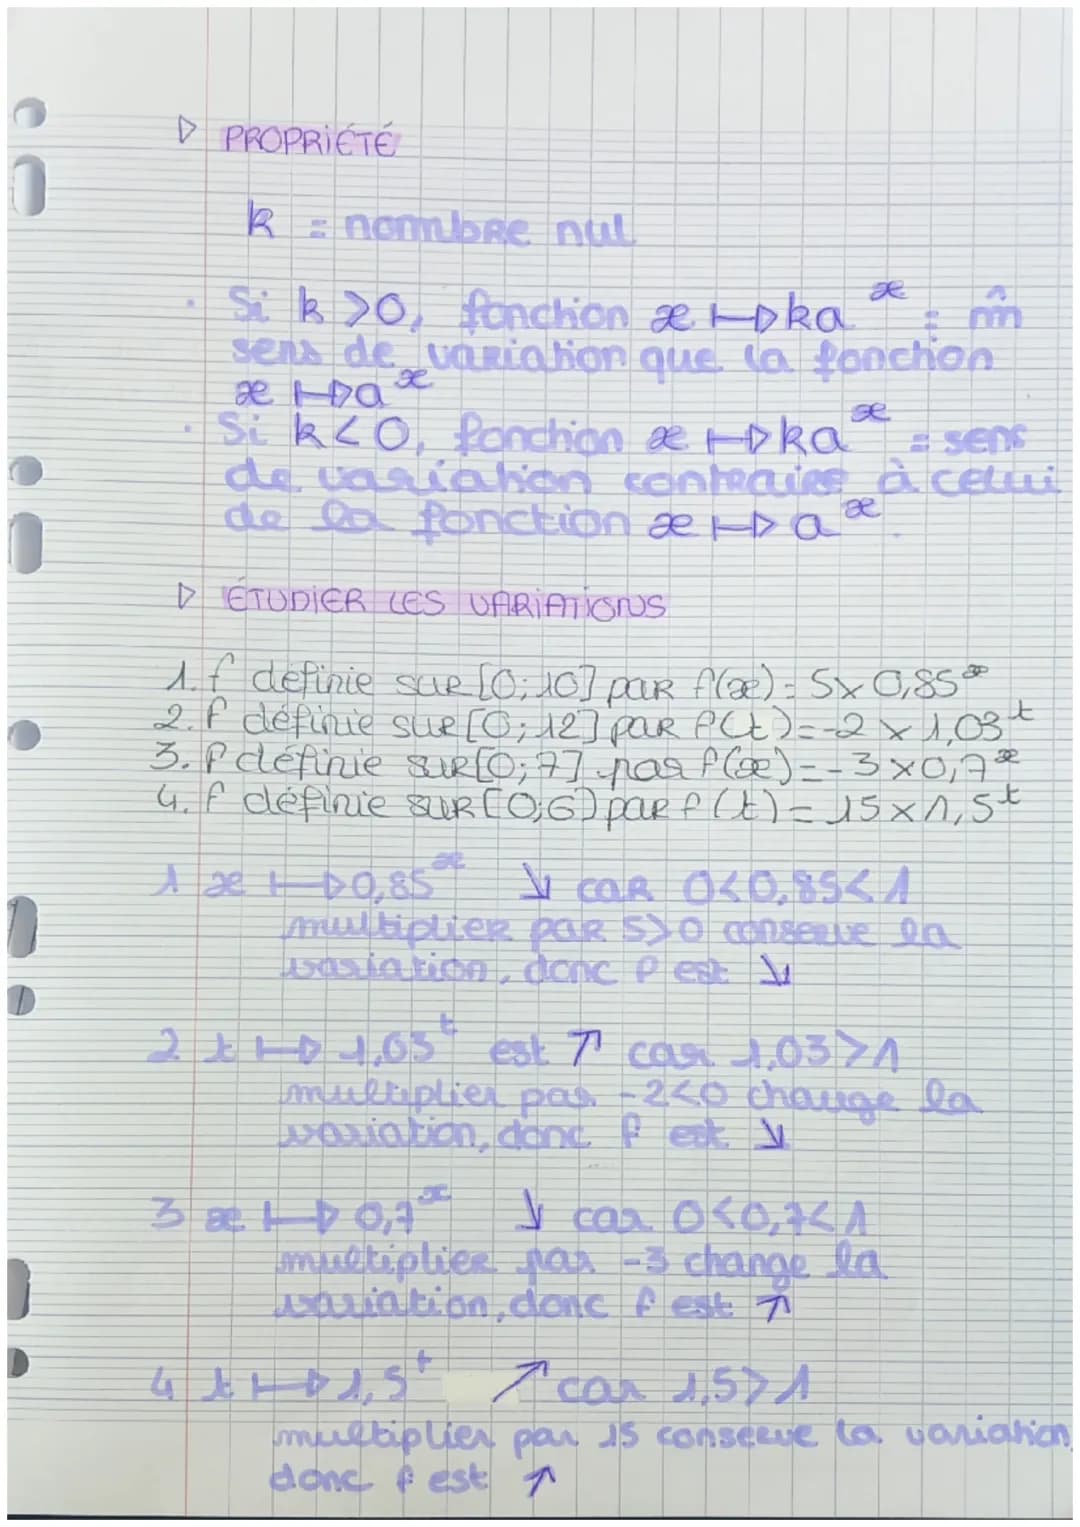 ▷ PROPRIÉTÉ
k = nombre nul
• Si k > 0, fonction x ↦ ka^x = m̂
sens de variation que la fonction
x ↦ a^x
• Si k < 0, fonction x ↦ ka^x = sens
de variation contraire à celui
de la fonction x ↦ a^x.
▷ ÉTUDIER LES VARIATIONS
1. f définie sur [0; 10] par f(x) = 5 x 0,85^x
2. f définie sur [0; 12] par f(t) = -2 x 1,03^t
3. f définie sur [0; 7] par f(x) = -3 x 0,7^x
4. f définie sur [0; 6] par f(t) = 15 x 1,5^t
1 x ↦ 0,85^x ↘ car 0 < 0,85 < 1
multiplier par 5 > 0 conserve la
variation, donc f est ↘
2 t ↦ 1,03^t est ↗ car 1,03 > 1
multiplier par -2 < 0 change la
variation, donc f est ↘
3 x ↦ 0,7^x ↘ car 0 < 0,7 < 1
multiplier par -3 change la
variation, donc f est ↗
4 t ↦ 1,5^t ↗ car 1,5 > 1
multiplier par 15 conserve la variation
donc f est ↗